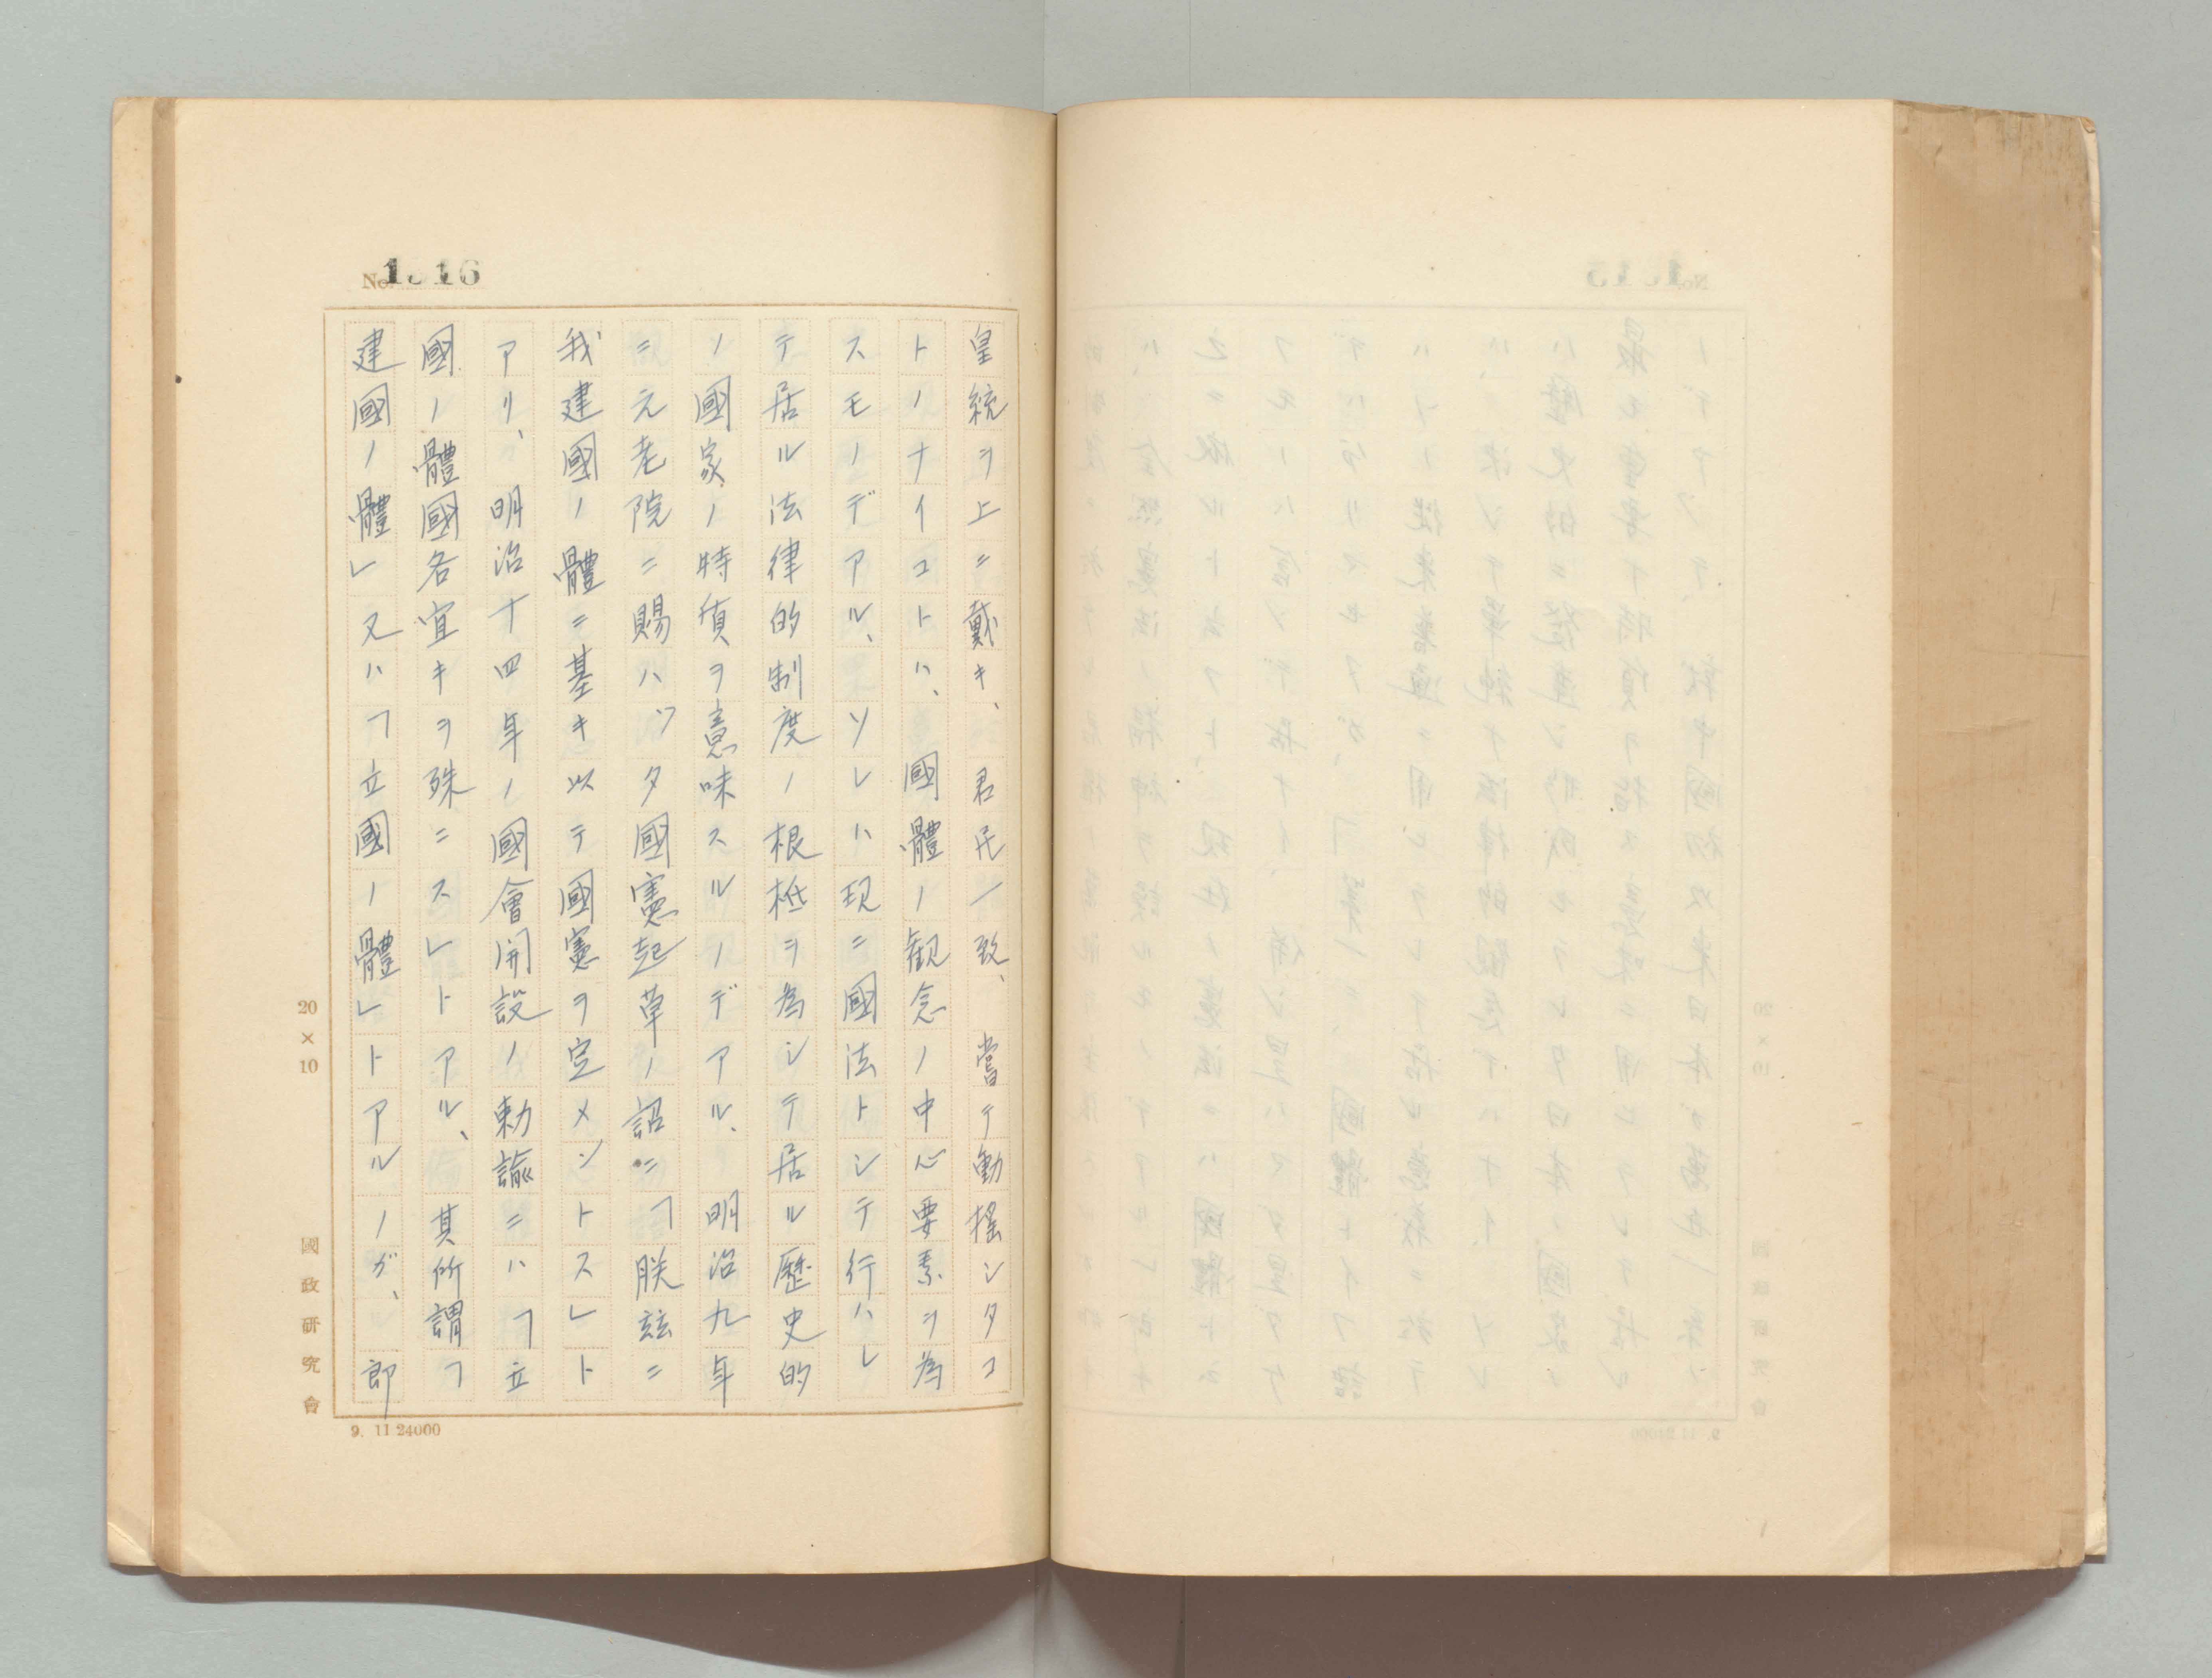 No. 1316
皇統ヲ上ニ戴キ、君民一致、嘗テ動揺シタコ
トノナイコトハ、國體ノ観念ノ中心要素ヲ為
スモノデアル、ソレハ現ニ國法トシテ行ハレ
テ居ル法律的制度ノ根柢ヲ為シテ居ル歴史的
ノ國家ノ特質ヲ意味スルノデアル、明治九年
ニ元老院ニ賜ハツタ國憲起草ノ詔ニ「朕玆ニ
我建國ノ體ニ基キ以テ國憲ヲ定メントス」ト
アリ、明治十四年ノ國會開設ノ勅諭ニハ「立
國ノ體國各宜キヲ殊ニス」トアル、其所謂「
建國ノ體」又ハ「立國ノ體」トアルノガ、即
20×10
國政研究會
9. 11 24000